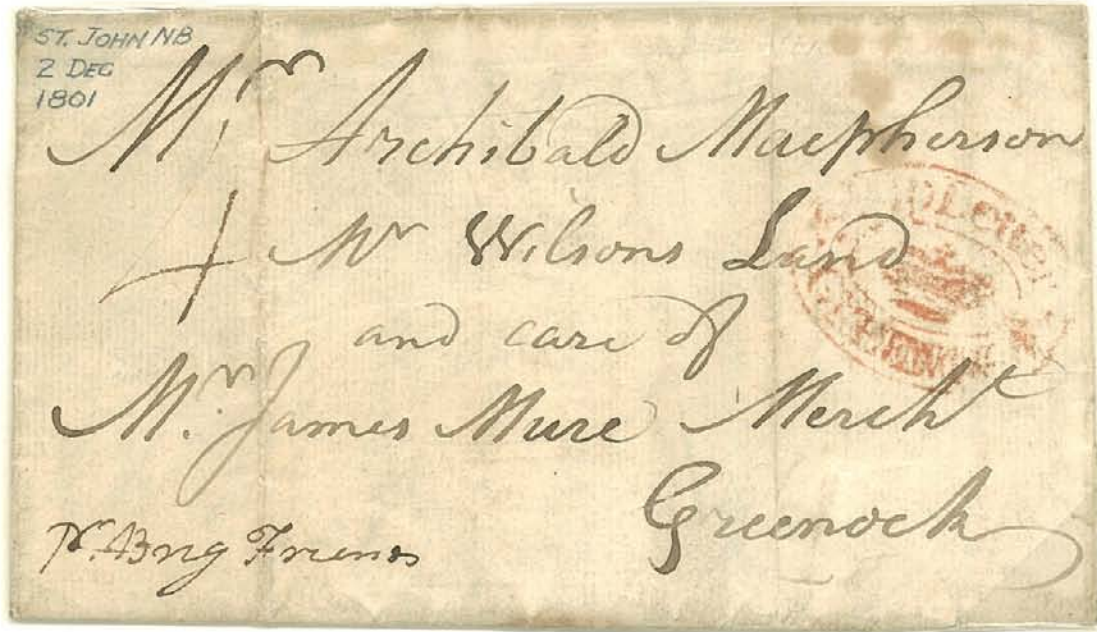 ST. JOHN NB
2 DEC
1801
Mr. Archibald Macpherson
Mr Wilsons Land
and care of
Mr. James Mure Mercht
Greenock
Pr. Brig Friends